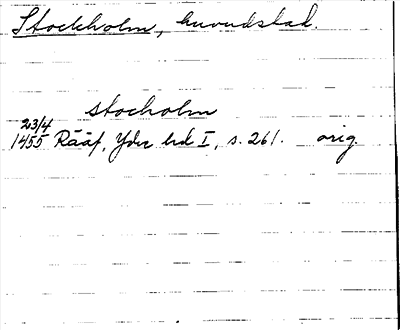 Stockholm, huvudstad.
stocholm
23/4
1455 Rääf, Ydre hd I, s. 261. orig.